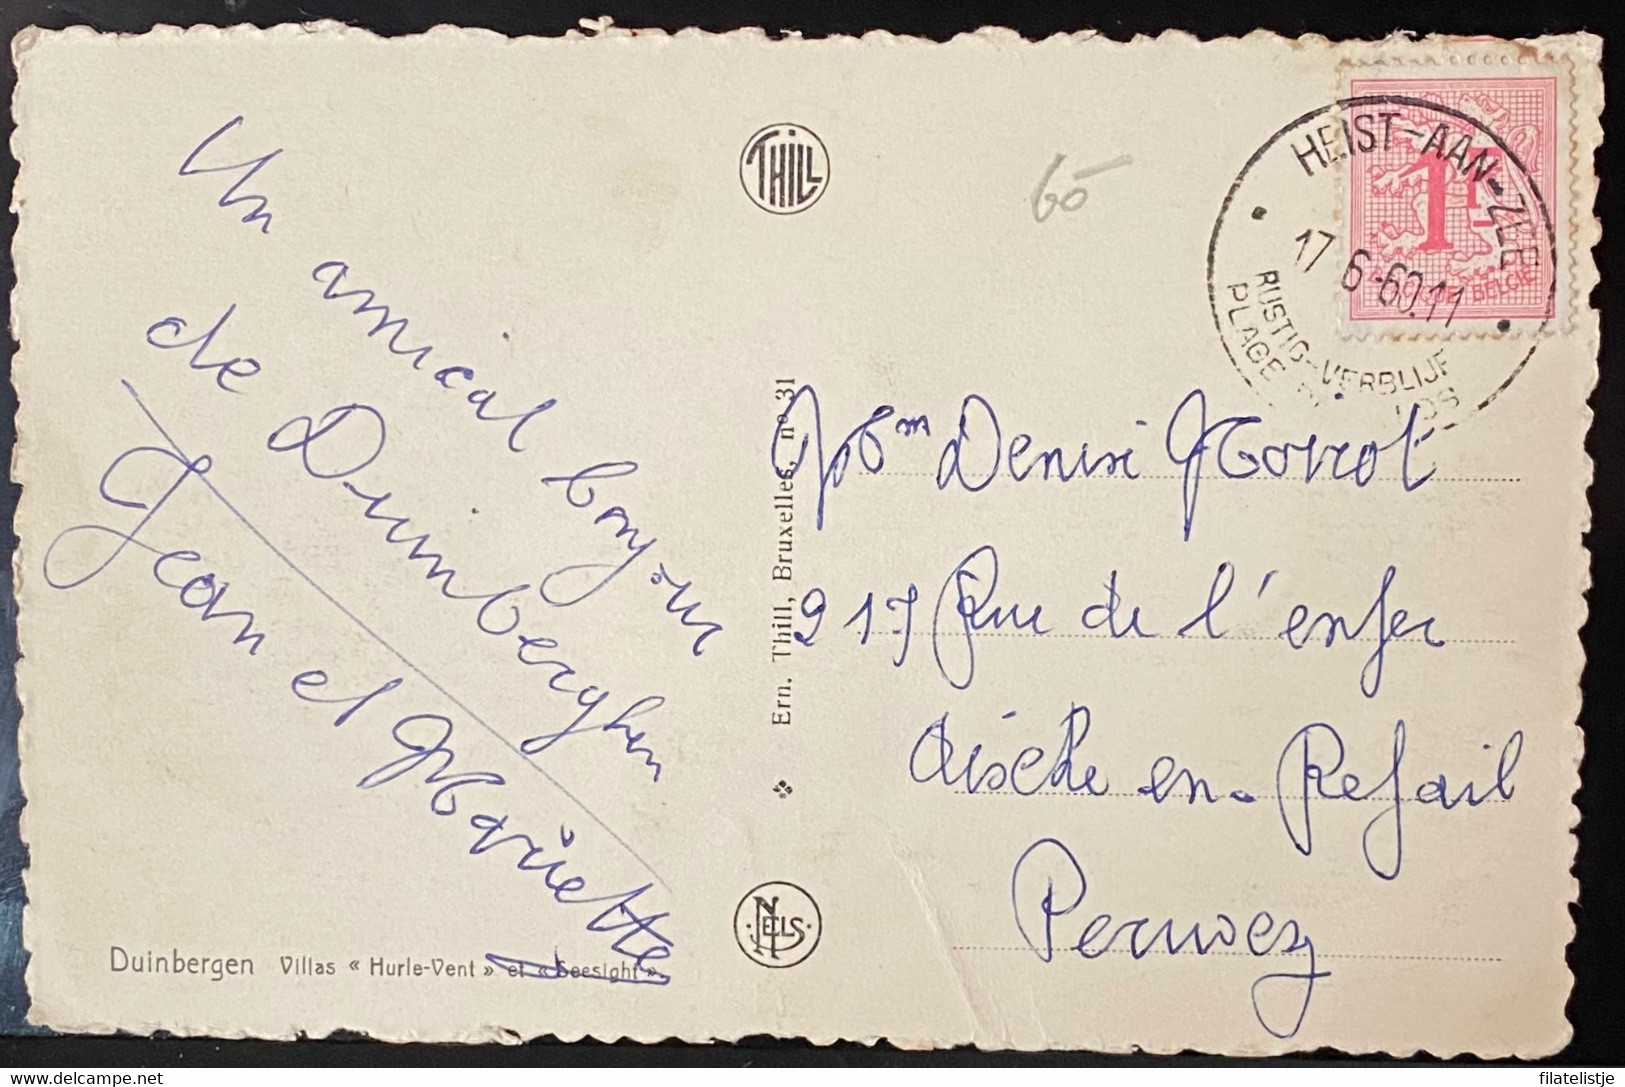 Un amical bonjour
de Duinberghen
Jean et Mariette
Duinbergen Villas « Hurle-Vent » et « Seesight ».
THILL
Ern. Thill, Bruxelles, n° 31
NELS
60
HEIST-AAN-ZEE
17-6-60.11
RUSTIG-VERBLIJF
PLAGE
1F
BELGIE
Mm Denise Moirot
917 Rue de l'enfer
Aische en-Refail
Perwez
filatelistje